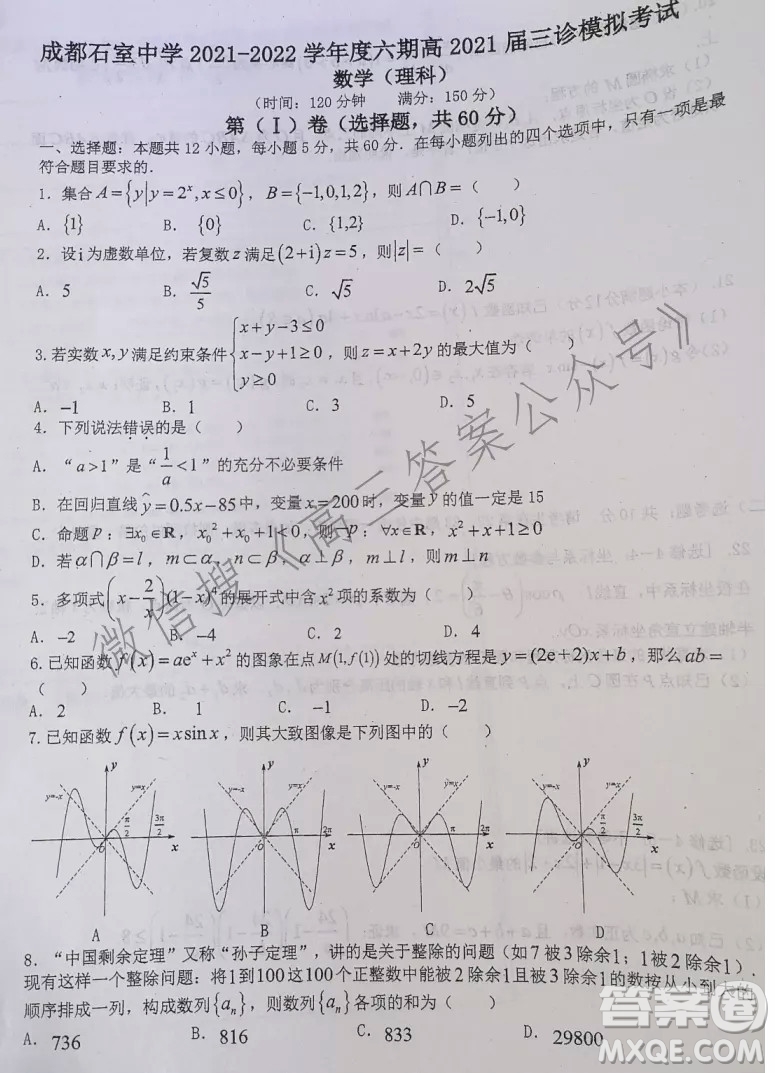 成都石室中学2021-2022学年度六期高2021届三诊模拟考试
数学（理科）
（时间：120分钟 满分：150分）
第（Ⅰ）卷（选择题，共60分）
一、选择题：本题共12小题，每小题5分，共60分．在每小题列出的四个选项中，只有一项是最
符合题目要求的．
1．集合A={y|y=2^x,x≤0}，B={-1,0,1,2}，则A∩B=（ ）
A．{1} B．{0} C．{1,2} D．{-1,0}
2．设i为虚数单位，若复数z满足(2+i)z=5，则|z|=（ ）
A．5 B．√5/5 C．√5 D．2√5
3.若实数x,y满足约束条件{x+y-3≤0
x-y+1≥0
y≥0，则z=x+2y的最大值为（ ）
A．-1 B．1 C．3 D．5
4．下列说法错误的是（ ）
A．“a>1”是“1/a<1”的充分不必要条件
B．在回归直线ŷ=0.5x-85中，变量x=200时，变量y的值一定是15
C．命题p：∃x₀∈R，x₀²+x₀+1<0，则¬p：∀x∈R，x²+x+1≥0
D．若α∩β=l，m⊂α，n⊂β，α⊥β，m⊥l，则m⊥n
5．多项式(x-2/x)(1-x)^4的展开式中含x²项的系数为（ ）
A．-2 B．-4 C．2 D．4
6.已知函数f(x)=ae^x+x²的图象在点M(1,f(1))处的切线方程是y=(2e+2)x+b，那么ab=
（ ）
A．2 B．1 C．-1 D．-2
7.已知函数f(x)=xsinx，则其大致图像是下列图中的（ ）
y y=-x y=x π/2 3π/2 x O
y y=-x y=x π 2π x O
y y=-x y=x π 2π x O
y y=-x y=x π/2 3π/2 x O
A B C D
8．“中国剩余定理”又称“孙子定理”，讲的是关于整除的问题（如7被3除余1；1被2除余1）．
现有这样一个整除问题：将1到100这100个正整数中能被2除余1且被3除余1的数按从小到大的
顺序排成一列，构成数列{aₙ}，则数列{aₙ}各项的和为（ ）
A．736 B．816 C．833 D．29800
微信搜《高三答案公众号》
答案圈
MXQE.COM